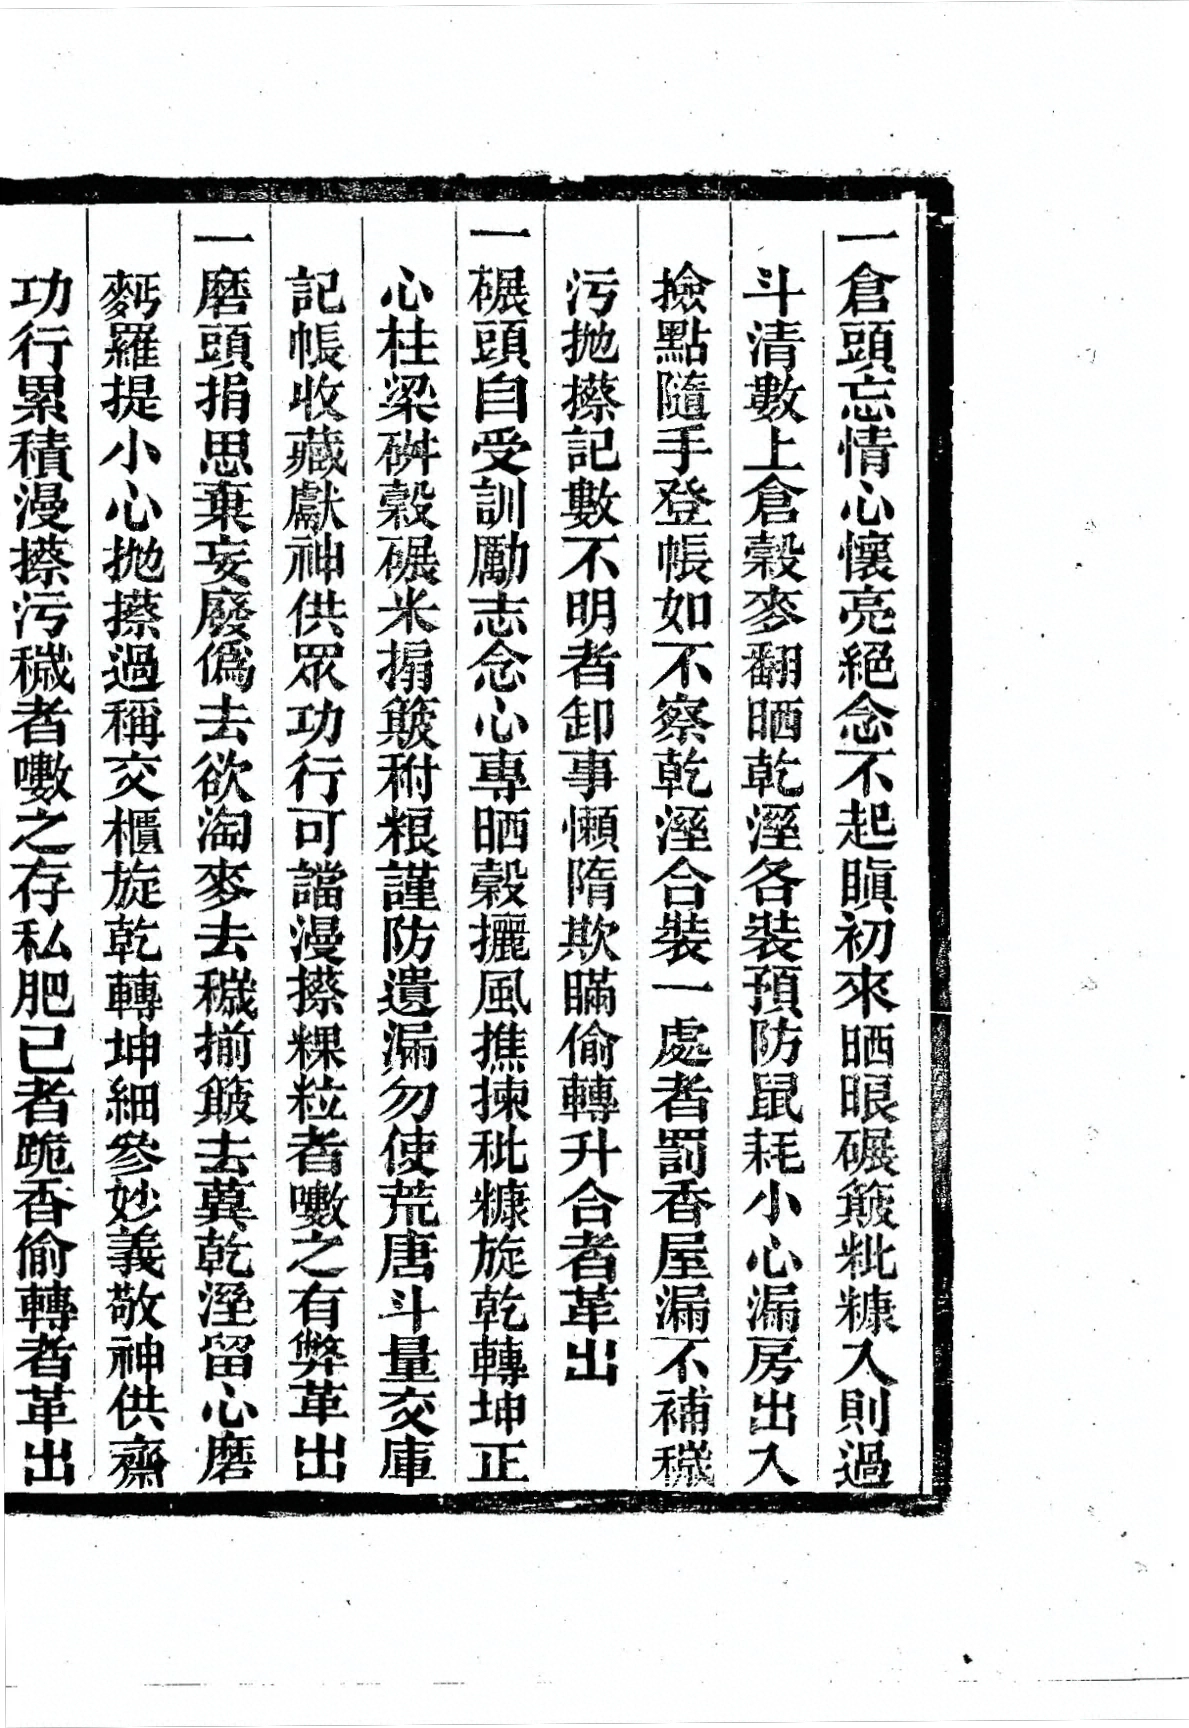 一倉頭忘情心懷亮絕念不起瞋初來晒晾碾簸粃糠入則過
斗清數上倉穀麥翻晒乾溼各裝預防鼠耗小心漏房出入
撿點隨手登帳如不察乾溼合裝一處者罰香屋漏不補穢
污拋擦記數不明者卸事懶隋欺瞞偷轉升合者革出
一碾頭自受訓勵志念心專晒穀攦風撨揀秕糠旋乾轉坤正
心柱梁硑穀碾米搧簸粉粮謹防遺漏勿使荒唐斗量交庫
記帳收藏獻神供眾功行可當漫擦粿粒者嗷之有弊革出
一磨頭捐思棄妄廢偽去欲淘麥去穢揃簸去糞乾溼留心磨
麫羅提小心拋擦過稱交櫃旋乾轉坤細參妙義敬神供齋
功行累積漫擦污穢者嗷之存私肥己者跪香偷轉者革出